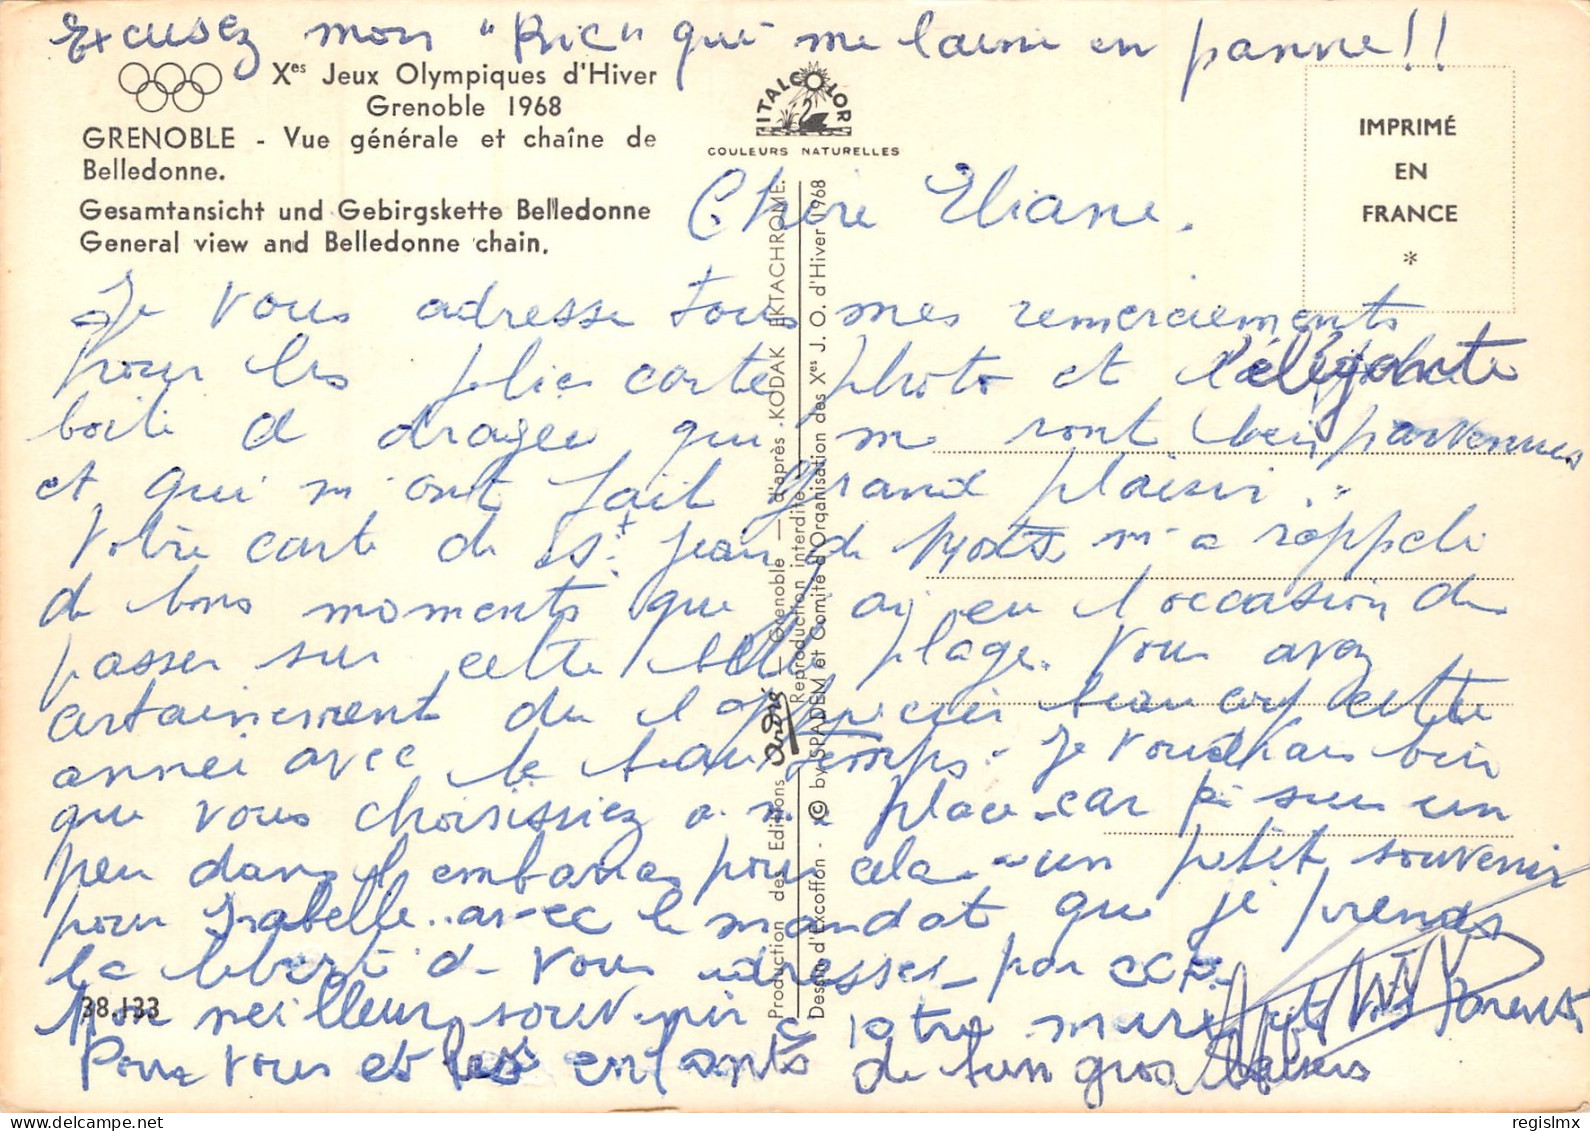 Excusez mon "Bic" qui me laisse en panne!!
Xes Jeux Olympiques d'Hiver
Grenoble 1968
GRENOBLE - Vue générale et chaîne de
Belledonne.
Gesamtansicht und Gebirgskette Belledonne
General view and Belledonne chain.
ITALCOLOR
COULEURS NATURELLES
IMPRIMÉ
EN
FRANCE
*
Chère Eliane.
Je vous adresse tous mes remerciements
pour les jolie carte photo et l'élégante
boite de dragée qui me sont bien parvenues
et qui m'ont fait grand plaisir.
Votre carte de St. Jean de Monts m'a rappelé
de bons moments que j'ai eu l'occasion de
passer sur cette belle plage. Vous avez
certainement du l'apprécier beaucoup cette
année avec le beau temps. Je voudrais bien
que vous choisissiez a ma place car je suis un
peu dans l'embarras pour cela - un petit souvenir
pour Isabelle.. avec le mandat que je prends
la liberté de vous adresser par
Mon meilleur souvenir a votre mari et vos Parents
Pour vous et les enfants de bien gros baisers
38.133
Production des Editions André — Grenoble — d'après KODAK EKTACHROME.
Reproduction interdite
Dessin d'Excoffon - © by SPADEM et Comité d'Organisation des Xes J. O. d'Hiver 1968
regislmx